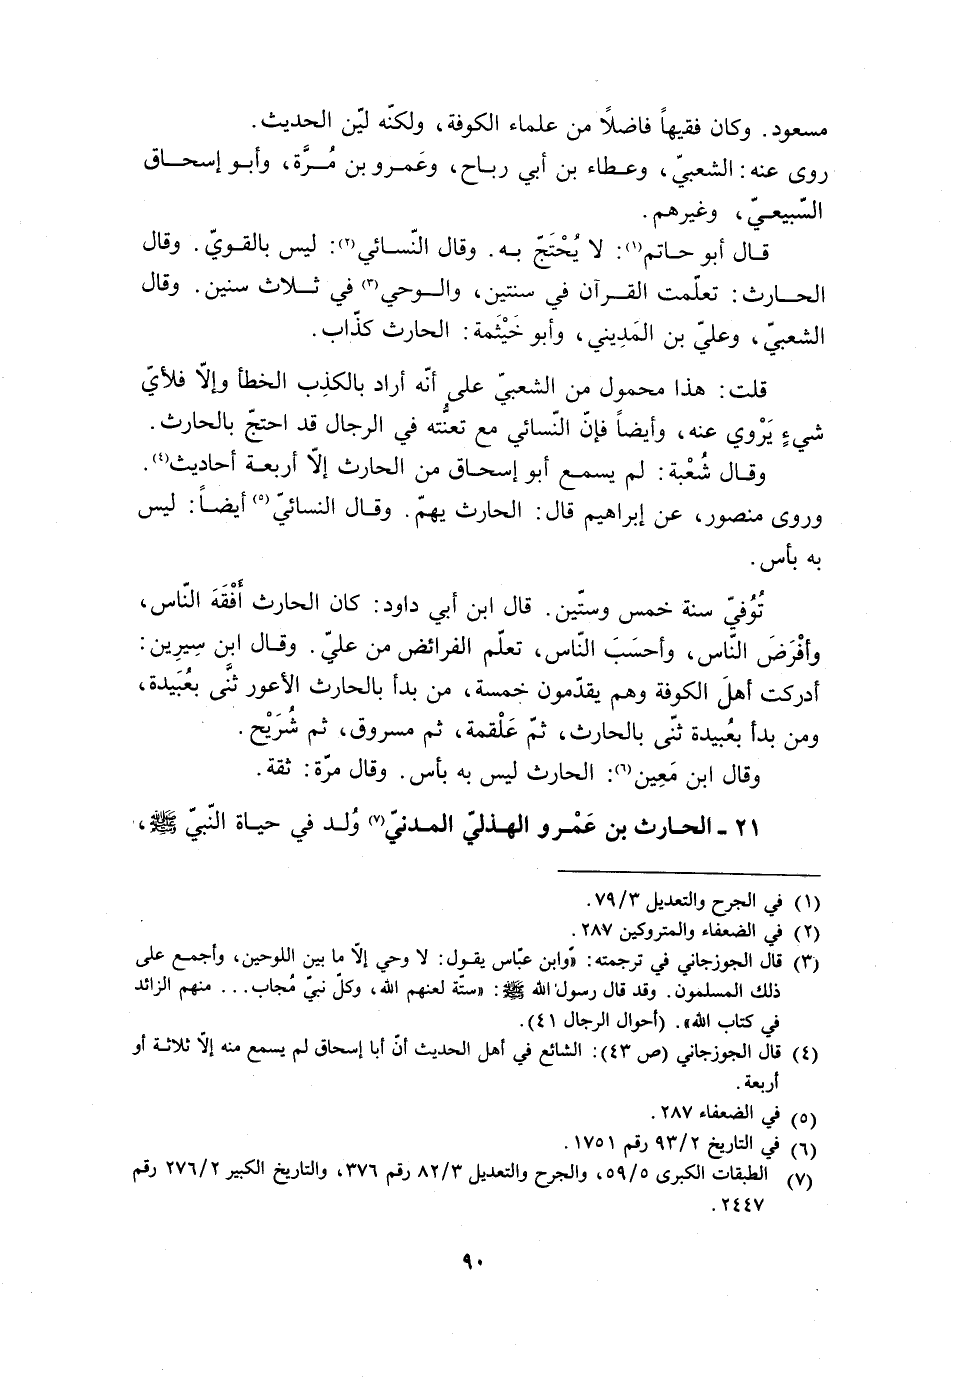 مسعود. وكان فقيهاً فاضلاً من علماء الكوفة، ولكنّه ليّن الحديث.
روى عنه: الشعبيّ، وعطاء بن أبي رباح، وعَمرو بن مُرَّة، وأبو إسحاق
السَّبيعيّ، وغيرهم.
قال أبو حاتم(١): لا يُحْتَجّ به. وقال النّسائي(٢): ليس بالقويّ. وقال
الحارث: تعلّمت القرآن في سنتين، والوحي(٣) في ثلاث سنين. وقال
الشعبيّ، وعليّ بن المَدِيني، وأبو خَيْثمة: الحارث كذّاب.
قلت: هذا محمول من الشعبيّ على أنّه أراد بالكذِب الخطأ وإلّا فلأيّ
شيءٍ يَرْوي عنه، وأيضاً فإنّ النّسائي مع تعنُّته في الرجال قد احتجّ بالحارث.
وقال شُعْبة: لم يسمع أبو إسحاق من الحارث إلّا أربعة أحاديث(٤).
وروى منصور، عن إبراهيم قال: الحارث يهمّ. وقال النسائيّ(٥) أيضاً: ليس
به بأس.
تُوُفيّ سنة خمس وستّين. قال ابن أبي داود: كان الحارث أَفْقَهَ النّاس،
وأفْرَضَ النّاس، وأحسَبَ النّاس، تعلّم الفرائض من عليّ. وقال ابن سِيرين:
أدركت أهلَ الكوفة وهم يقدّمون خمسة، من بدأ بالحارث الأعور ثنَّى بعُبَيدة،
ومن بدأ بعُبيدة ثنّى بالحارث، ثمّ عَلْقمة، ثم مسروق، ثم شُرَيْح.
وقال ابن مَعِين(٦): الحارث ليس به بأس. وقال مرّة: ثقة.
٢١ ـ الحارث بن عَمْرو الهذليّ المدنيّ(٧) وُلد في حياة النّبيّ ﷺ،
(١) في الجرح والتعديل ٧٩/٣.
(٢) في الضعفاء والمتروكين ٢٨٧.
(٣) قال الجوزجاني في ترجمته: «وابن عبّاس يقول: لا وحي إلّا ما بين اللوحين، وأجمع على
ذلك المسلمون. وقد قال رسول الله ﷺ: «ستّة لعنهم الله، وكلّ نبيّ مُجاب... منهم الزائد
في كتاب الله». (أحوال الرجال ٤١).
(٤) قال الجوزجاني (ص ٤٣): الشائع في أهل الحديث أنّ أبا إسحاق لم يسمع منه إلّا ثلاثة أو
أربعة.
(٥) في الضعفاء ٢٨٧.
(٦) في التاريخ ٩٣/٢ رقم ١٧٥١.
(٧) الطبقات الكبرى ٥٩/٥، والجرح والتعديل ٨٢/٣ رقم ٣٧٦، والتاريخ الكبير ٢٧٦/٢ رقم
٢٤٤٧.
٩٠